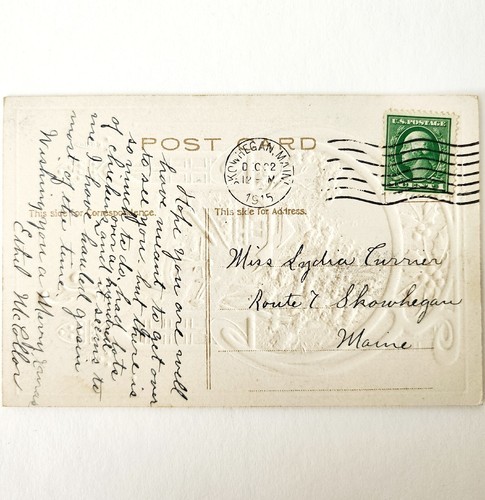 POST CARD
This side for Correspondence.
This side for Address.
SKOWHEGAN, MAINE
DEC 22
12 - M
1915
U.S. POSTAGE
Hope you are well
have meant to get over
to see you but there is
so much to do had lots
of chickens and
it seems to
me I have hauled grain
most of the time.
Wishing you a Merry Xmas
Ethel
Miss Lydia Currier
Route 7 Skowhegan
Maine